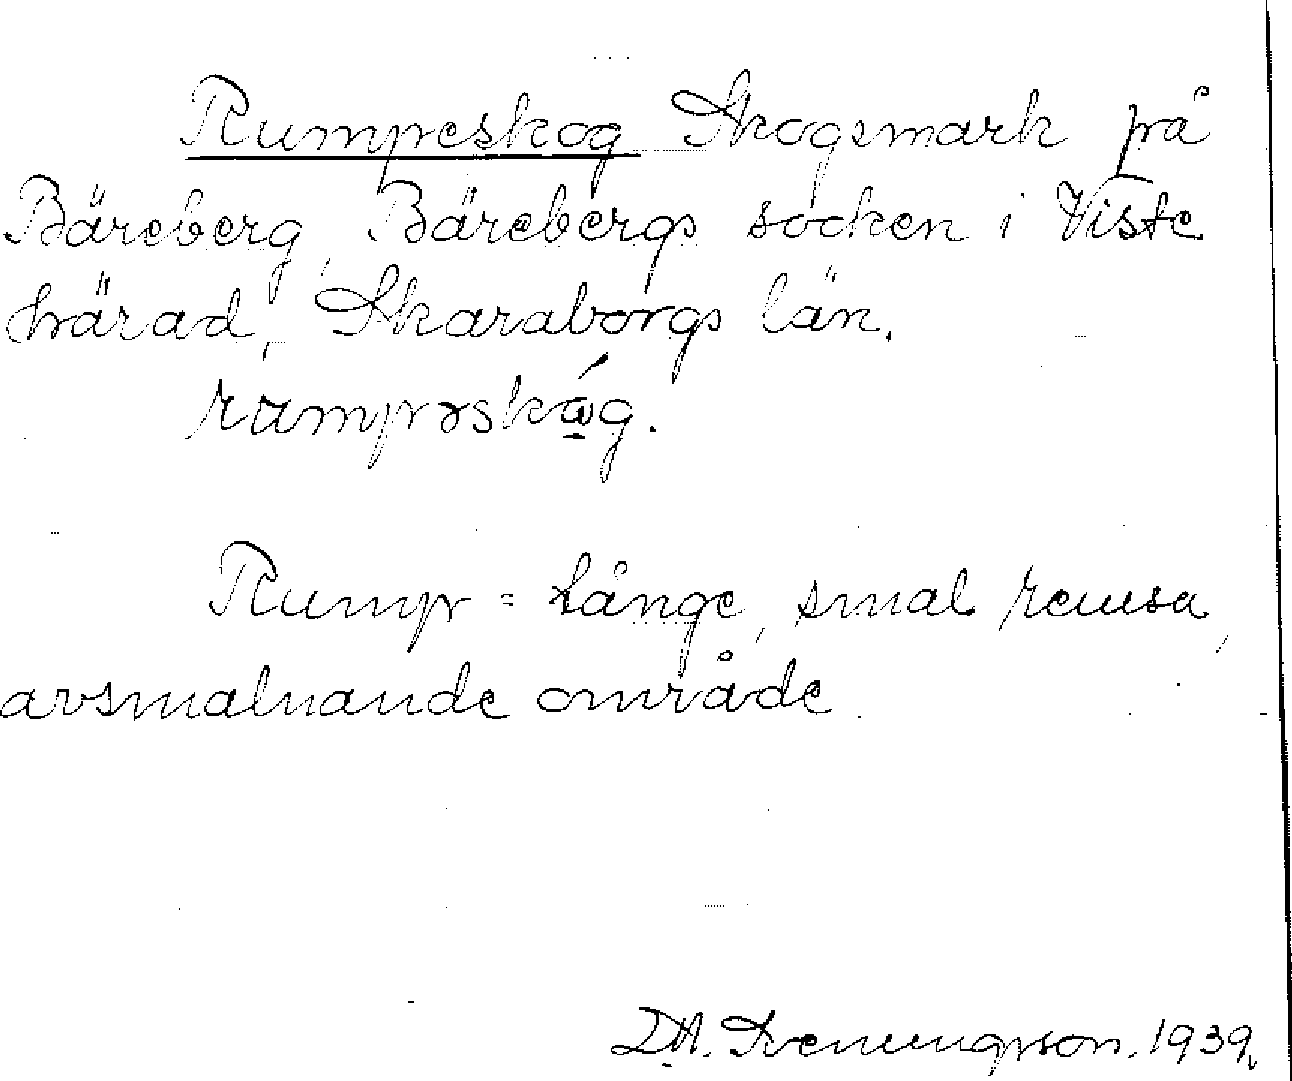 Rumpeskog Skogsmark på
Bäreberg, Bärebergs socken i Viste
härad, Skaraborgs län.
Rump = långe, smal remsa,
avsmalnande område.
1939.